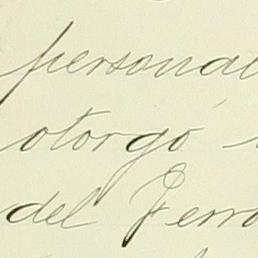 personal
otorgó
del Ferro